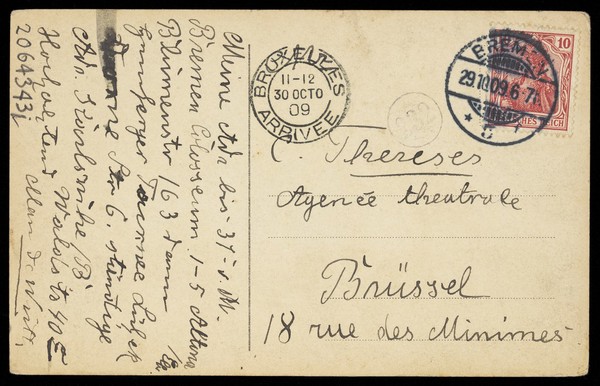 Meine Adr. bis 31. d. M.
Bremen Colosseum 1-5 Altona
Blumenstr 163 dann
Tournee
Str 6. ständige
Adr. Karlsruhe /B
Waldstr 40
Hochachtend
2064343i
BRUXELLES
11-12
30 OCTO
09
ARRIVEE
BREMEN
29.10.09.6-7
10
DEUTSCHES REICH
C. Thereses
Agencé theatrale
Brüssel
18 rue des Minimes